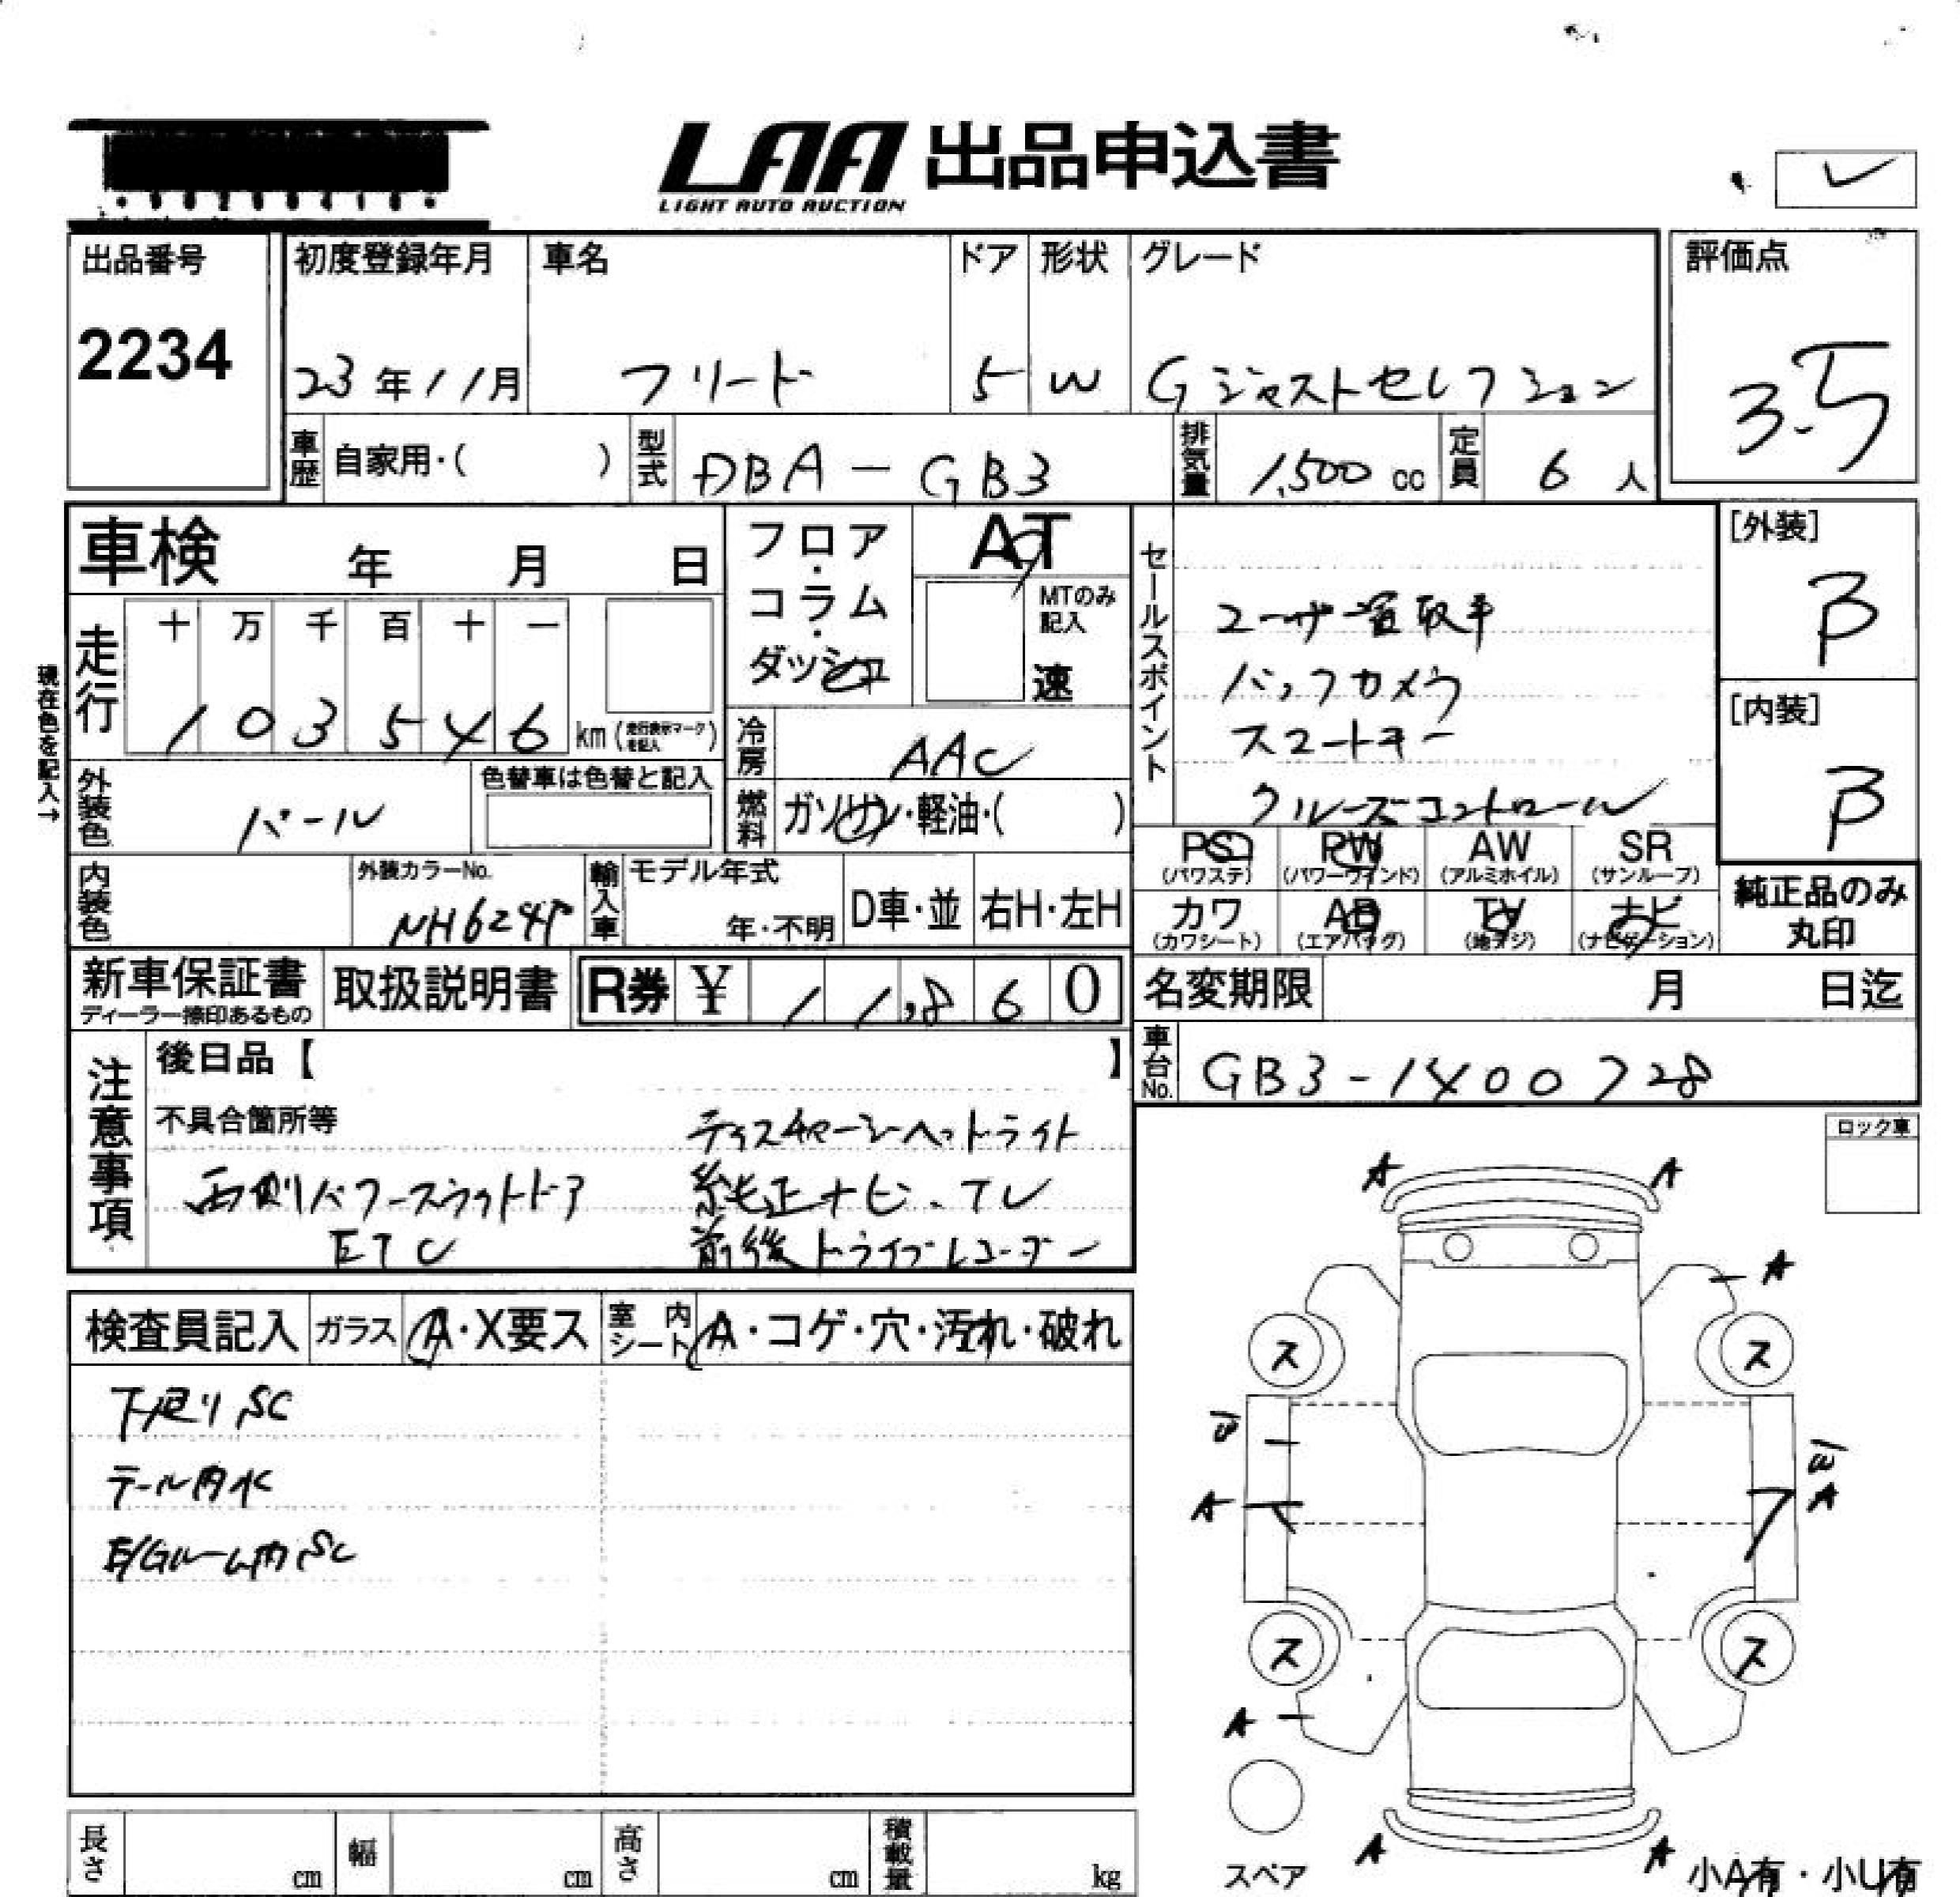 LAA 出品申込書
LIGHT AUTO AUCTION
出品番号
2234
初度登録年月
23年11月
車名
フリード
ドア
5
形状
W
グレード
Gジャストセレクション
評価点
3.5
車歴
自家用・( )
型式
DBA-GB3
排気量
1,500 cc
定員
6 人
車検 年 月 日
フロア・コラム・ダッシュ
AT
MTのみ記入
速
セールスポイント
ユーザー買取車
バックカメラ
スマートキー
クルーズコントロール
[外装]
B
[内装]
B
現在色を記入→
走行
十 万 千 百 十 一
1 0 3 5 4 6 km(走行表示マークを記入)
冷房
AAC
外装色
パール
色替車は色替と記入
燃料
ガソリン・軽油・( )
PS
(パワステ)
PW
(パワーウインド)
AW
(アルミホイル)
SR
(サンルーフ)
カワ
(カワシート)
AB
(エアバッグ)
TV
(地デジ)
ナビ
(ナビゲーション)
純正品のみ
丸印
内装色
外装カラーNo.
NH624P
輸入車
モデル年式
年・不明
D車・並
右H・左H
新車保証書
ディーラー捺印あるもの
取扱説明書
R券 ¥ 11,860
名変期限 月 日迄
車台No.
GB3-1400728
注意事項
後日品【 】
不具合箇所等
ディスチャージヘッドライト
両側パワースライドドア 純正ナビ.TV
ETC 前後ドライブレコーダー
ロック車
検査員記入
ガラス
A・X要ス
室内シート
A・コゲ・穴・汚れ・破れ
下廻りSC
テール内水
E/Gルーム内SC
A A
A
ス ス
A A
ス ス
A
A A
スペア
小A有・小U有
長さ cm
幅 cm
高さ cm
積載量 kg